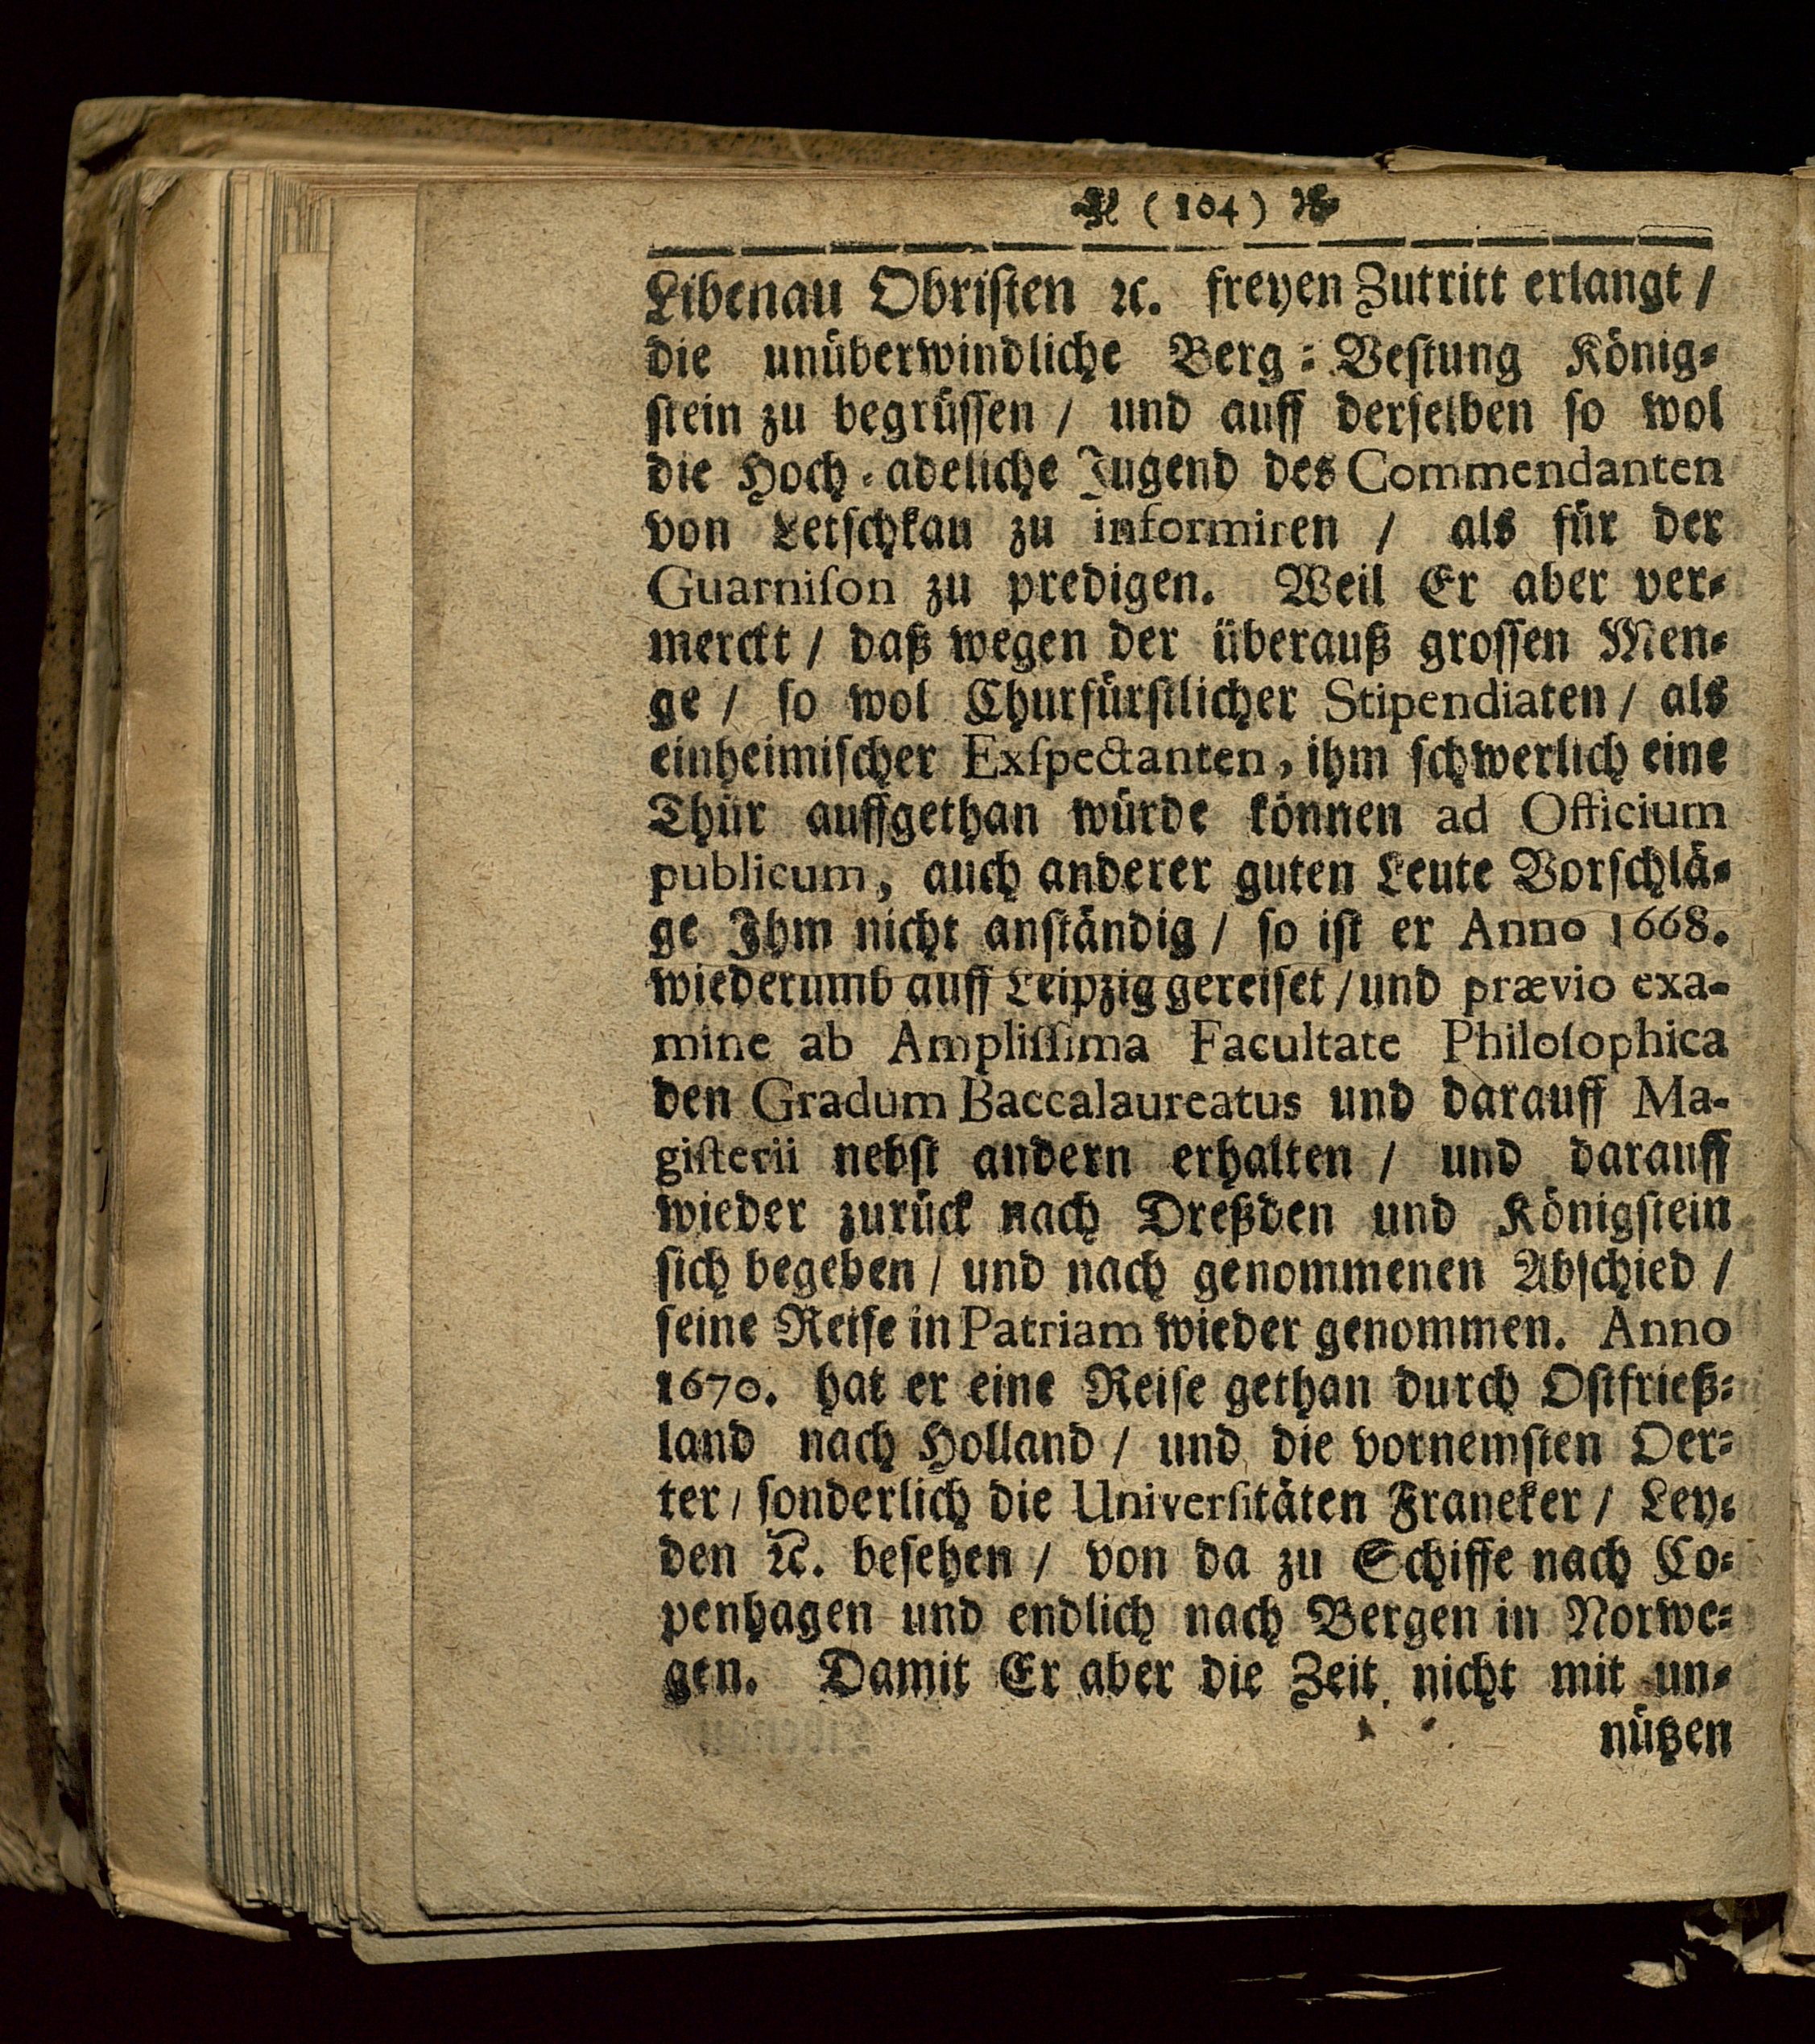 (104)
Libenau Obriſten ꝛc. freyen Zutritt erlangt /
die unüberwindliche Berg-Veſtung König-
ſtein zu begrüſſen / und auff derſelben ſo wol
die Hoch-adeliche Jugend des Commendanten
von Letſchkau zu informiren / als für der
Guarniſon zu predigen. Weil Er aber ver-
merckt / daß wegen der überauß groſſen Men-
ge / ſo wol Churfürſtlicher Stipendiaten / als
einheimiſcher Exſpectanten, ihm ſchwerlich eine
Thür auffgethan würde können ad Officium
publicum, auch anderer guten Leute Vorſchlä-
ge Ihm nicht anſtändig / ſo iſt er Anno 1668.
wiederumb auff Leipzig gereiſet / und prævio exa-
mine ab Ampliſſima Facultate Philoſophica
den Gradum Baccalaureatus und darauff Ma-
giſterii nebſt andern erhalten / und darauff
wieder zurück nach Dreßden und Königſtein
ſich begeben / und nach genommenen Abſchied /
ſeine Reiſe in Patriam wieder genommen. Anno
1670. hat er eine Reiſe gethan durch Oſtfrieß-
land nach Holland / und die vornemſten Oer-
ter / ſonderlich die Univerſitäten Franeker / Ley-
den ꝛc. beſehen / von da zu Schiffe nach Co-
penhagen und endlich nach Bergen in Norwe-
gen. Damit Er aber die Zeit nicht mit un-
nützen